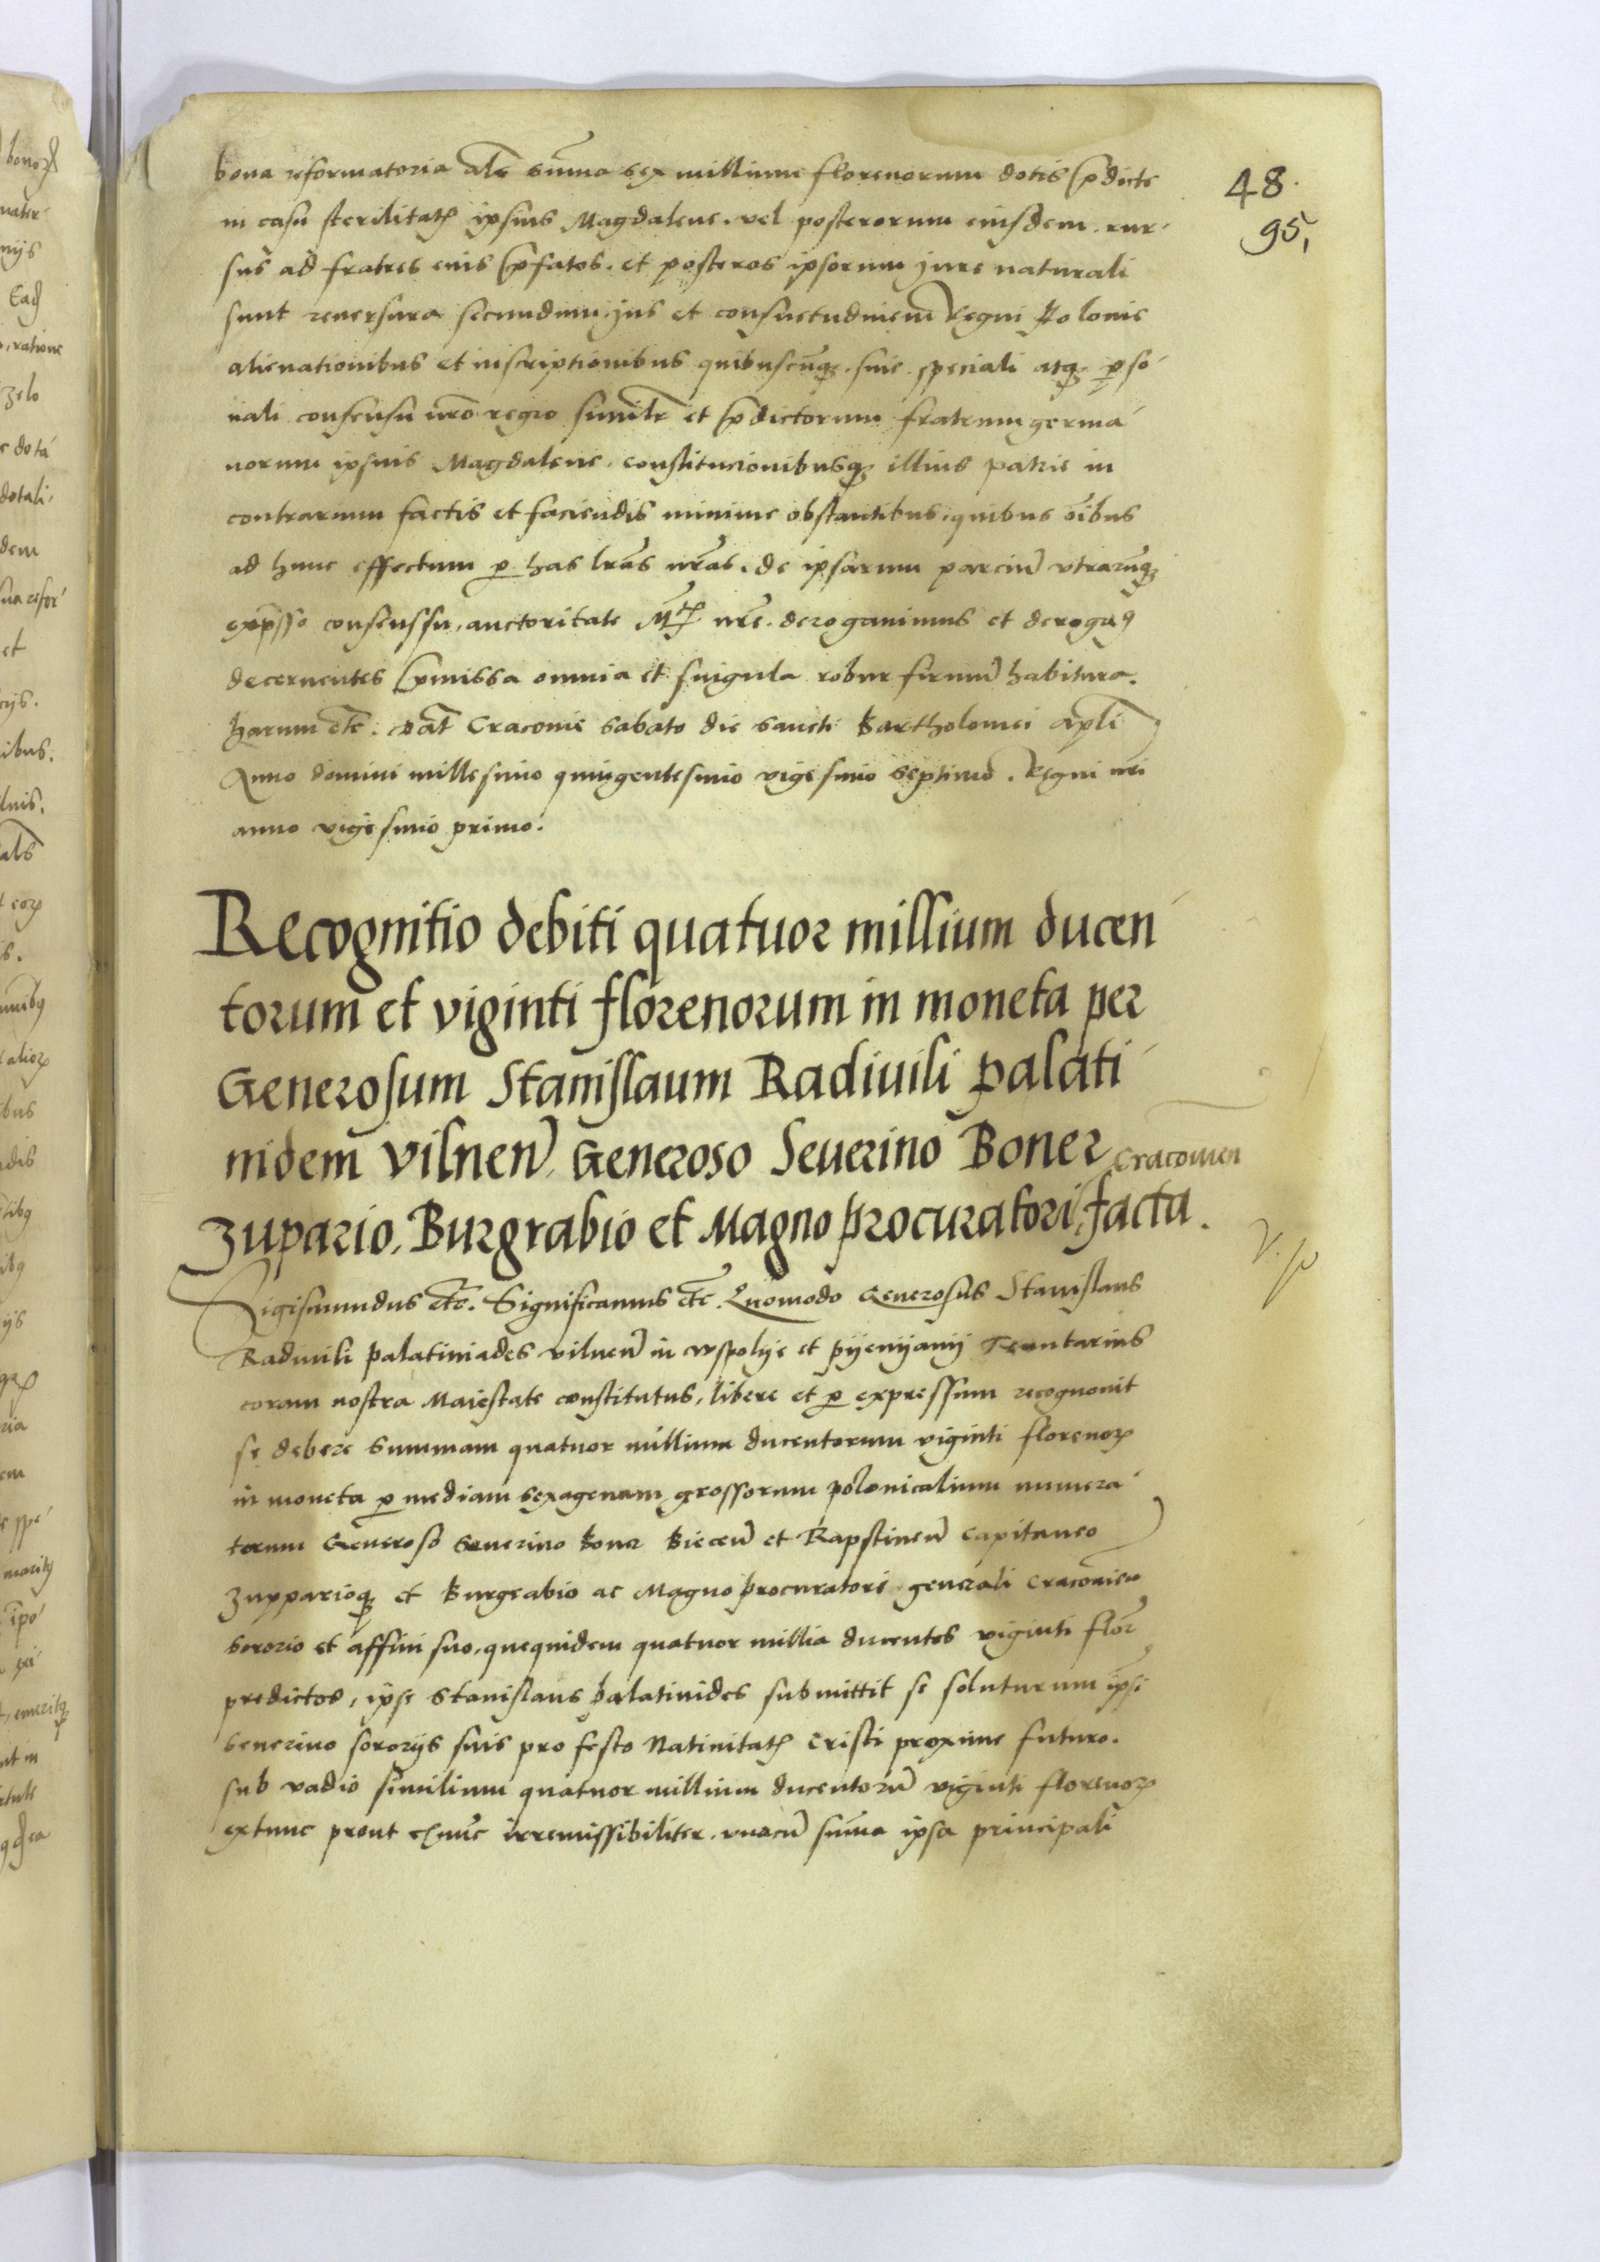 bona reformatoria als sūma sex millium florenorum dotis p̄dicte
in casu sterilitatꝭ ipsius Magdalene. vel posterorum eiusdem. rur-
sus ad fratres eius p̄fatos. et posteros ipsorum jure naturali
sunt reuersura secundum jus et consuetudinem Regni Polonie
alienationibus et inscriptionibus quibuscūqꝫ. sine speciali atqꝫ ꝑso-
nali consensu nr̄o regio similr̄ et p̄dictorum fratrum germa-
norum ipsius Magdalene. constitucionibusqꝫ illius patrie in
contrarium factis et faciendis minime obstantibus. quibus oībus
ad hunc effectum ꝑ has lrās nrās. de ipsarum parciū vtrarūqꝫ
exp̄sso consenssu. auctoritate Mtꝭ nr̄e. deroganimus et derogaꝰ
decernentes p̄missa omnia et singula robur firmū habitura.
harum etc̄. Dat̄ Cracouie sabato die sancti Bartholomei apl̄i
Anno domini millesimo quingentesimo vigesimo septimo. Regni nr̄i
anno vigesimo primo.
48.
95,
Recognitio debiti quatuor millium ducen-
torum et viginti florenorum in moneta per
Generosum Stanislaum Radiuili palati-
nidem vilnen̄ Generoso Seuerino Boner Cracouien
zupario, Burgrabio et Magno procuratori, facta.
Sigismundus etc̄. Significamus etc̄. Quomodo Generosus Stanislaus
Radiuili palatiniades vilnen̄ in vspolye et pyenyany Tenutarius
coram nostra Maiestate constitutus, libere et ꝑ expressum recognouit
se debere summam quatuor millium ducentorum viginti florenoꝝ
in moneta ꝑ mediam sexagenam grossorum polonicalium numera-
torum Generoso Seuerino Boner Biecen̄ et Rapstinen̄ Capitaneo
zupparioqꝫ et Burgrabio ac Magno procuratori generali Cracouien
sororio et affini suo. quequidem quatuor millia ducentos viginti flor̄
predictos, ipse Stanislaus palatinides submittit se soluturum ip̄si
Seuerino sororijs suis pro festo Natiuitatꝭ Cristi proxime futuro.
sub vadio similium quatuor millium ducentorū viginti florenoꝝ
extunc prout exnūc irremissibiliter. vnacū sum̄a ipsa principali